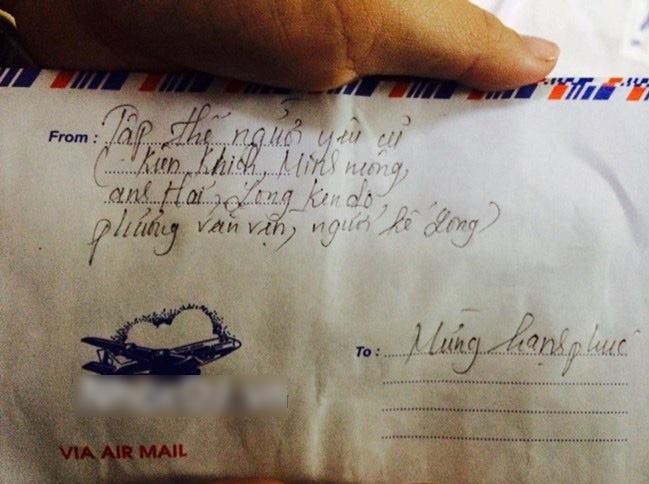 From : Tập thể người yêu cũ
( Kiên Khích, Minh mông,
anh Hải, Long Kendo,
phương văn vịn, người kế Long)
To : Mừng hạnh phúc
VIA AIR MAIL